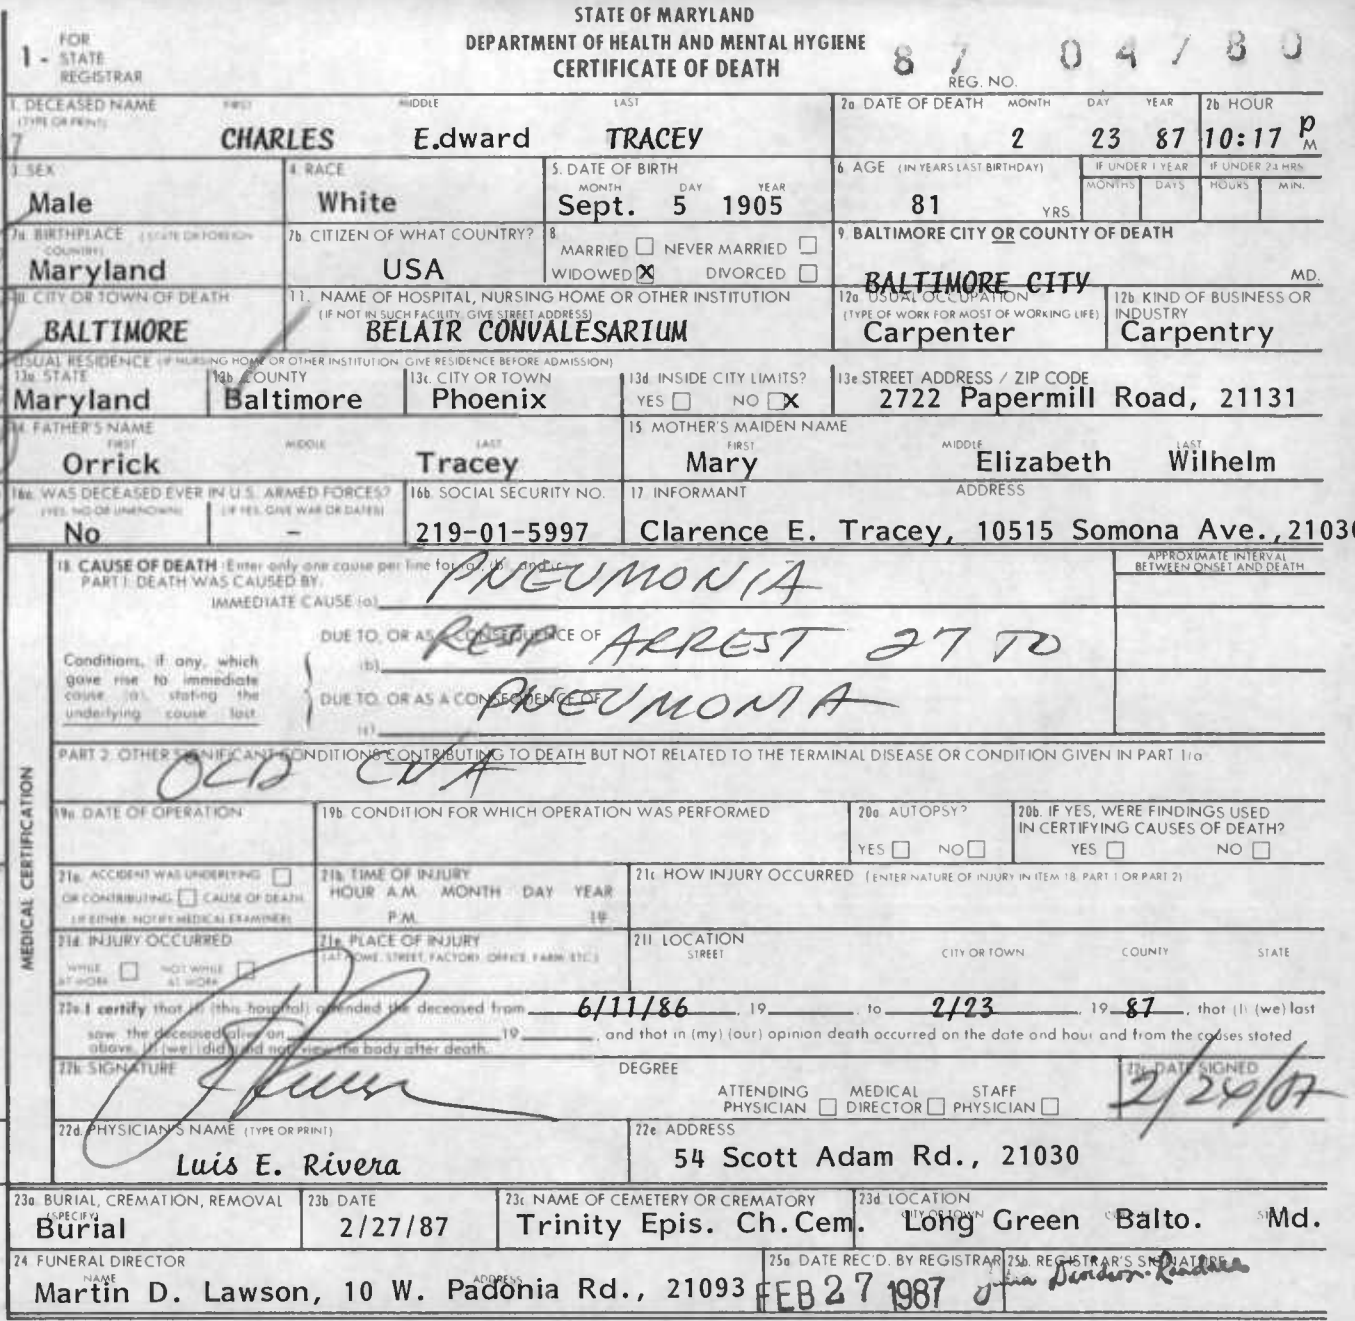 STATE OF MARYLAND
DEPARTMENT OF HEALTH AND MENTAL HYGIENE
CERTIFICATE OF DEATH
1 - FOR STATE REGISTRAR
87 04780
REG. NO.
1. DECEASED NAME (TYPE OR PRINT) FIRST MIDDLE LAST
CHARLES E.dward TRACEY
2a DATE OF DEATH MONTH DAY YEAR
2 23 87
2b HOUR
10:17 P M
3. SEX
Male
4. RACE
White
5. DATE OF BIRTH
MONTH DAY YEAR
Sept. 5 1905
6 AGE (IN YEARS LAST BIRTHDAY)
81 YRS
IF UNDER 1 YEAR
MONTHS DAYS
IF UNDER 24 HRS
HOURS MIN.
7a. BIRTHPLACE (STATE OR FOREIGN COUNTRY)
Maryland
7b. CITIZEN OF WHAT COUNTRY?
USA
8.
MARRIED NEVER MARRIED
WIDOWED X DIVORCED
9. BALTIMORE CITY OR COUNTY OF DEATH
BALTIMORE CITY MD.
10. CITY OR TOWN OF DEATH
BALTIMORE
11. NAME OF HOSPITAL, NURSING HOME OR OTHER INSTITUTION
(IF NOT IN SUCH FACILITY, GIVE STREET ADDRESS)
BELAIR CONVALESARIUM
12a USUAL OCCUPATION
(TYPE OF WORK FOR MOST OF WORKING LIFE)
Carpenter
12b KIND OF BUSINESS OR INDUSTRY
Carpentry
USUAL RESIDENCE (IF NURSING HOME OR OTHER INSTITUTION GIVE RESIDENCE BEFORE ADMISSION)
13a. STATE
Maryland
13b. COUNTY
Baltimore
13c. CITY OR TOWN
Phoenix
13d INSIDE CITY LIMITS?
YES NO X
13e STREET ADDRESS / ZIP CODE
2722 Papermill Road, 21131
14. FATHER'S NAME
FIRST MIDDLE LAST
Orrick Tracey
15 MOTHER'S MAIDEN NAME
FIRST MIDDLE LAST
Mary Elizabeth Wilhelm
16a. WAS DECEASED EVER IN U.S. ARMED FORCES?
(YES, NO OR UNKNOWN) (IF YES, GIVE WAR OR DATES)
No -
16b. SOCIAL SECURITY NO.
219-01-5997
17 INFORMANT ADDRESS
Clarence E. Tracey, 10515 Somona Ave.,21030
MEDICAL CERTIFICATION
18 CAUSE OF DEATH Enter only one cause per line for (a), (b), and (c)
PART 1. DEATH WAS CAUSED BY:
APPROXIMATE INTERVAL BETWEEN ONSET AND DEATH
IMMEDIATE CAUSE (a) PNEUMONIA
Conditions, if any, which gave rise to immediate cause (a), stating the underlying cause last
DUE TO, OR AS A CONSEQUENCE OF
(b) RESP ARREST 27 TO
DUE TO, OR AS A CONSEQUENCE OF
(c) PNEUMONIA
PART 2. OTHER SIGNIFICANT CONDITIONS CONTRIBUTING TO DEATH BUT NOT RELATED TO THE TERMINAL DISEASE OR CONDITION GIVEN IN PART 1(a
OLD CVA
19a. DATE OF OPERATION
19b. CONDITION FOR WHICH OPERATION WAS PERFORMED
20a AUTOPSY?
YES NO
20b. IF YES, WERE FINDINGS USED IN CERTIFYING CAUSES OF DEATH?
YES NO
21a. ACCIDENT WAS UNDERLYING
OR CONTRIBUTING CAUSE OF DEATH
(IF EITHER, NOTIFY MEDICAL EXAMINER)
21b. TIME OF INJURY
HOUR A.M. MONTH DAY YEAR
P.M. 19
21c HOW INJURY OCCURRED (ENTER NATURE OF INJURY IN ITEM 18, PART 1 OR PART 2)
21d. INJURY OCCURRED
WHILE AT WORK NOT WHILE AT WORK
21e. PLACE OF INJURY
(AT HOME, STREET, FACTORY, OFFICE, FARM, ETC.)
21f. LOCATION
STREET CITY OR TOWN COUNTY STATE
22a. I certify that (I) (this hospital) attended the deceased from 6/11/86, 19 to 2/23 19 87, that (I) (we) last
saw the deceased alive on 19, and that in (my) (our) opinion death occurred on the date and hour and from the causes stated
above, (I) (we) (did) (did not) view the body after death.
22b. SIGNATURE
DEGREE
ATTENDING PHYSICIAN MEDICAL DIRECTOR STAFF PHYSICIAN
22c. DATE SIGNED
2/24/87
22d. PHYSICIAN'S NAME (TYPE OR PRINT)
Luis E. Rivera
22e ADDRESS
54 Scott Adam Rd., 21030
23a BURIAL, CREMATION, REMOVAL (SPECIFY)
Burial
23b DATE
2/27/87
23c NAME OF CEMETERY OR CREMATORY
Trinity Epis. Ch.Cem.
23d LOCATION
CITY OR TOWN
Long Green Balto. Md.
24 FUNERAL DIRECTOR
NAME ADDRESS
Martin D. Lawson, 10 W. Padonia Rd., 21093
25a DATE REC'D. BY REGISTRAR
FEB 27 1987
25b. REGISTRAR'S SIGNATURE